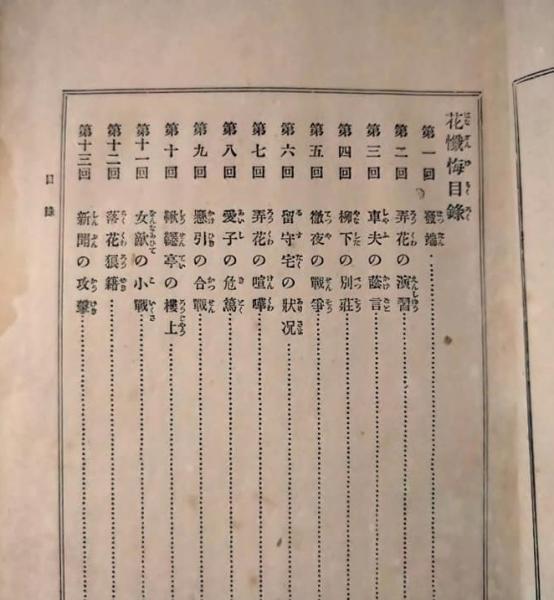 花懺悔目錄
第一回 發端
第二回 弄花の演習
第三回 車夫の蔭言
第四回 柳下の別莊
第五回 徹夜の戰爭
第六回 留守宅の狀况
第七回 弄花の喧嘩
第八回 愛子の危篤
第九回 懸引の合戰
第十回 鞦韆亭の樓上
第十一回 女敵の小戰
第十二回 落花狼籍
第十三回 新聞の攻擊
目錄